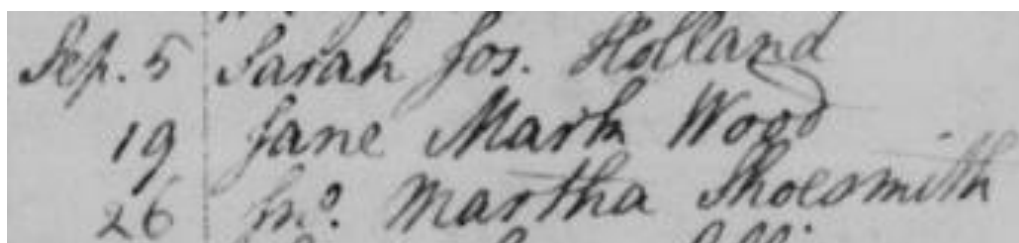 Sep. 5 Sarah Jos. Holland
19 Jane Mark Wood
26 Jno. Martha Shoesmith